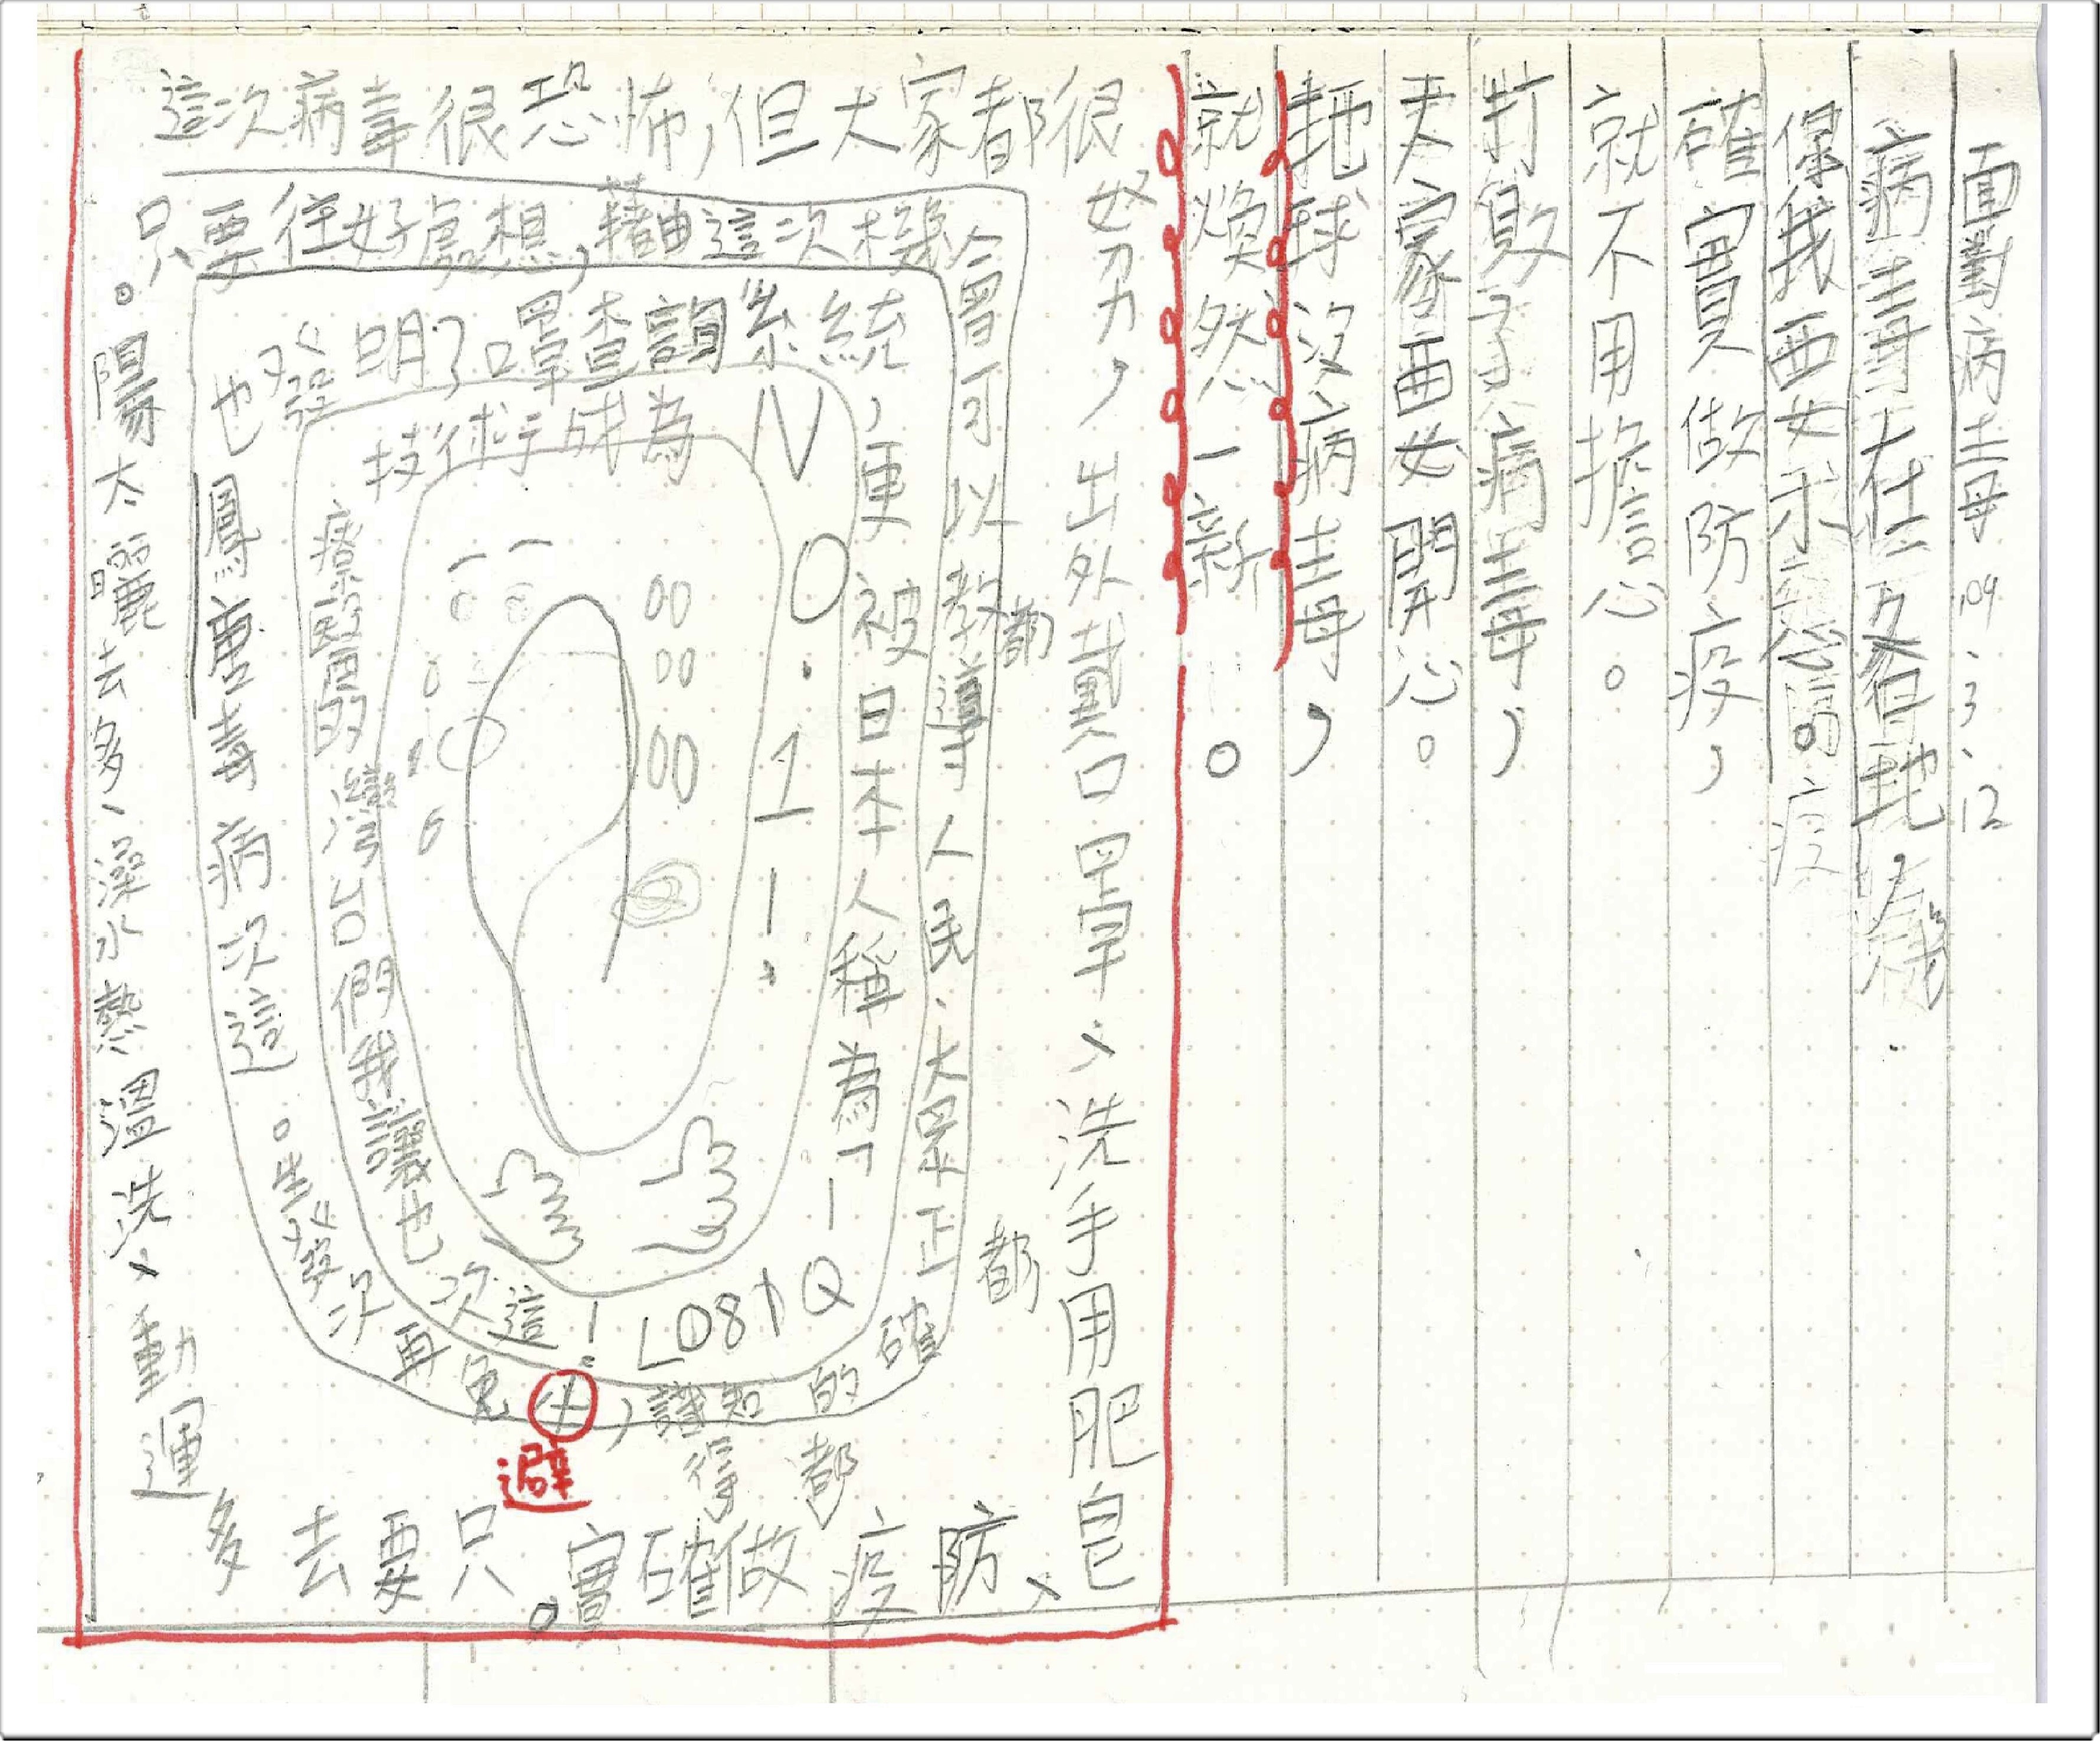 面對病毒 109.3.12
病毒在各地,
我要
確實做防疫,
就不用擔心。
打敗了病毒,
大家要開心。
地球沒病毒,
就煥然一新。
這次病毒很恐怖,但大家都很
努力,出外戴口罩、洗手用肥皂
、防疫做確實。只要去多
運動、洗溫熱水澡、多去曬太陽。
只要往好處想,藉由這次機會
可以教導人民、大眾正確
的知識,避免再次發生。
這次病毒
也發明了口罩查詢系統
,更被日本人稱為「IQ
180」!這次
也讓我們台灣的醫療
技術成為NO.1!
都
都
都得
避